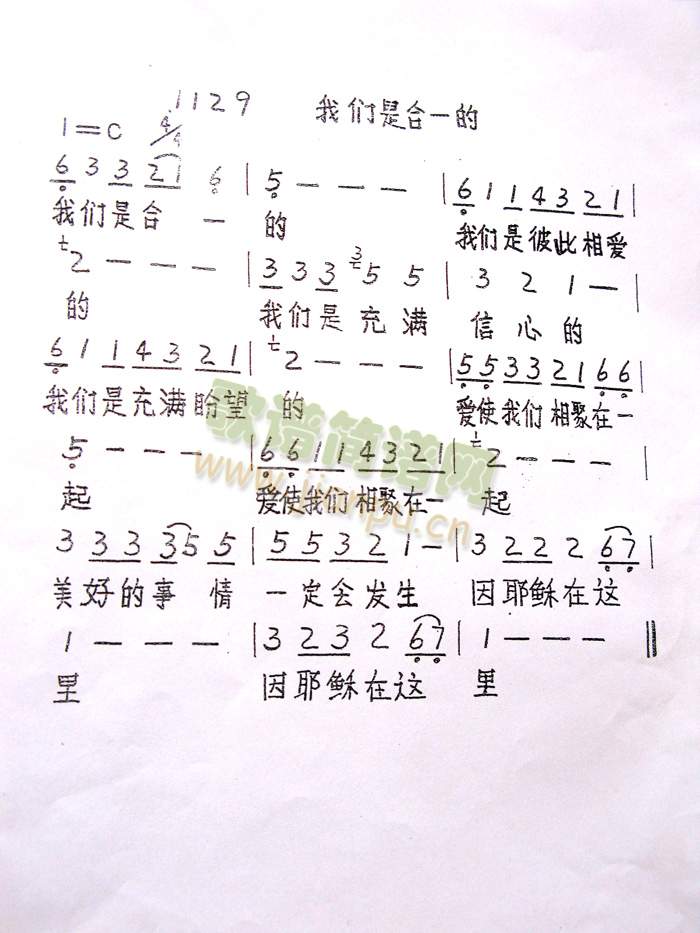 1129 我们是合一的
1=C 4/4
6 3 3 2 1 6 | 5 — — — | 6 1 1 4 3 2 1 |
我们是合一 的 我们是彼此相爱
七2 — — — | 3 3 3 3七5 5 | 3 2 1 — |
的 我们是充满 信心的
6 1 1 4 3 2 1 | 七2 — — — | 5 5 3 3 2 1 6 6 |
我们是充满盼望 的 爱使我们相聚在一
5 — — — | 6 6 1 1 4 3 2 1 | 七2 — — — |
起 爱使我们相聚在一 起
3 3 3 3 5 5 | 5 5 3 2 1 — | 3 2 2 2 6 7 |
美好的事情 一定会发生 因耶稣在这
1 — — — | 3 2 3 2 6 7 | 1 — — — ‖
里 因耶稣在这 里
歌谱简谱网
www.jianpu.cn